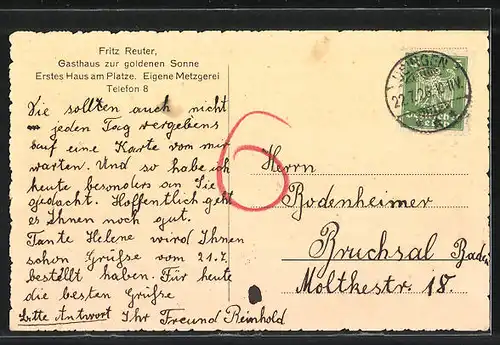 Fritz Reuter,
Gasthaus zur goldenen Sonne
Erstes Haus am Platze. Eigene Metzgerei
Telefon 8
Sie sollten auch nicht
jeden Tag vergebens
auf eine Karte von mir
warten. Und so habe ich
heute besonders an Sie
gedacht. Hoffentlich geht
es Ihnen noch gut.
Tante Helene wird Ihnen
schon Grüße vom 21.7.
bestellt haben. Für heute
die besten Grüße
Bitte Antwort Ihr Freund Reinhold
6
Herrn
Bodenheimer
Bruchsal Baden
Moltkestr. 18.